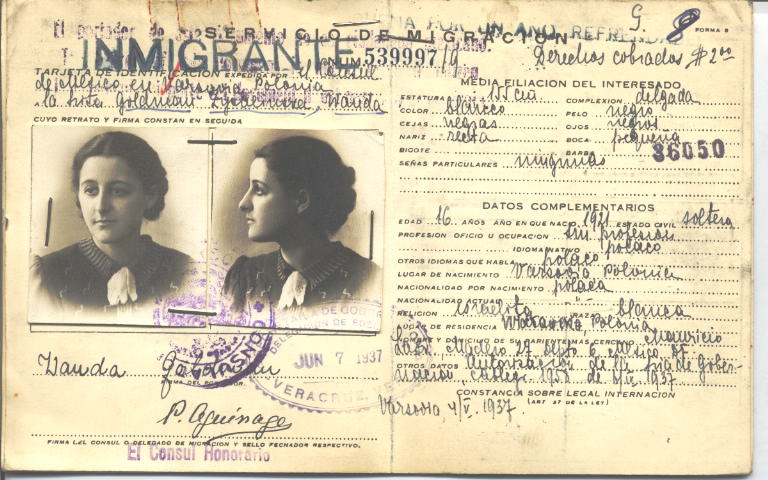 SERVICIO DE MIGRACION
FORMA 8
G. 8
INMIGRANTE
POR UN AÑO REFRENDABLE
NUM. 539997/9
Derechos cobrados $2.00
TARJETA DE IDENTIFICACION EXPEDIDA POR el Cónsul
de México en Varsovia Polonia
a la Srita Goldman Wanda
CUYO RETRATO Y FIRMA CONSTAN EN SEGUIDA
Wanda Goldman
FIRMA DEL PORTADOR
P. Aguinaga
FIRMA DEL CONSUL O DELEGADO DE MIGRACION Y SELLO FECHADOR RESPECTIVO.
El Consul Honorario
JUN 7 1937
VERACRUZ, VER.
MEDIA FILIACION DEL INTERESADO
ESTATURA 155 cm COMPLEXION delgada
COLOR blanco PELO negro
CEJAS negras OJOS negros
NARIZ recta BOCA pequeña
BIGOTE BARBA
36050
SEÑAS PARTICULARES ningunas
DATOS COMPLEMENTARIOS
EDAD 16 AÑOS AÑO EN QUE NACIO 1921 ESTADO CIVIL soltera
PROFESION OFICIO U OCUPACION sin profesion
IDIOMA NATIVO polaco
OTROS IDIOMAS QUE HABLA polaco
LUGAR DE NACIMIENTO Varsovia Polonia
NACIONALIDAD POR NACIMIENTO polaca
NACIONALIDAD ACTUAL
RELIGION israelita RAZA blanca
LUGAR DE RESIDENCIA Varsovia Polonia
NOMBRE Y DOMICILIO DE SUS PARIENTES MAS CERCANOS Mauricio
29 6 Mexico DF
OTROS DATOS Autorización de la Sría de Gober-
nacion, 1937
CONSTANCIA SOBRE LEGAL INTERNACION
(ART 37 DE LA LEY)
Varsovia, 4/V. 1937